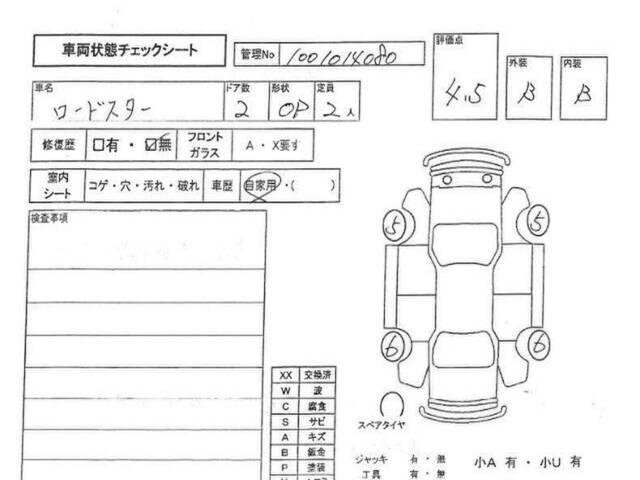 車両状態チェックシート
管理No 1001014080
評価点 4.5
外装 B
内装 B
車名 ロードスター
ドア数 2
形状 OP
定員 2人
修復歴 □有・☑無
フロントガラス A・X要す
室内シート コゲ・穴・汚れ・破れ
車歴 自家用・( )
検査事項
5 5
6 6
XX 交換済
W 波
C 腐食
S サビ
A キズ
B 鈑金
P 塗装
スペアタイヤ
ジャッキ 有・無
工具 有・無
小A 有・小U 有